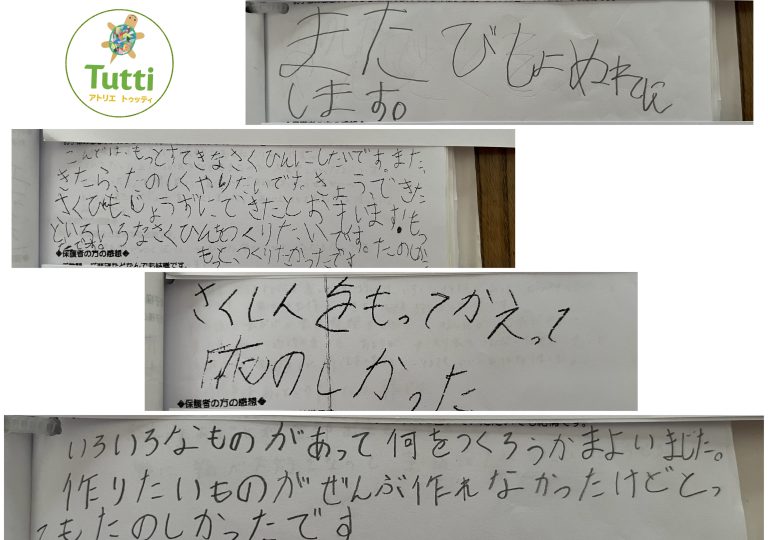 Tutti
アトリエ トゥッティ
また びしょぬれに
します。
こんどは、もっとすてきなさくひんにしたいです。また、
きたら、たのしくやりたいです。きょうできた
さくひんも、じょうずにできたとおもいます!もっ
といろいろなさくひんをつくりたいです。たのしか
ったです。
もっと、つくりたかったです
◆保護者の方の感想◆
さくしんをもってかえって
たのしかった
◆保護者の方の感想◆
いろいろなものがあって何をつくろうかまよいました。
作りたいものがぜんぶ作れなかったけどとっ
てもたのしかったです